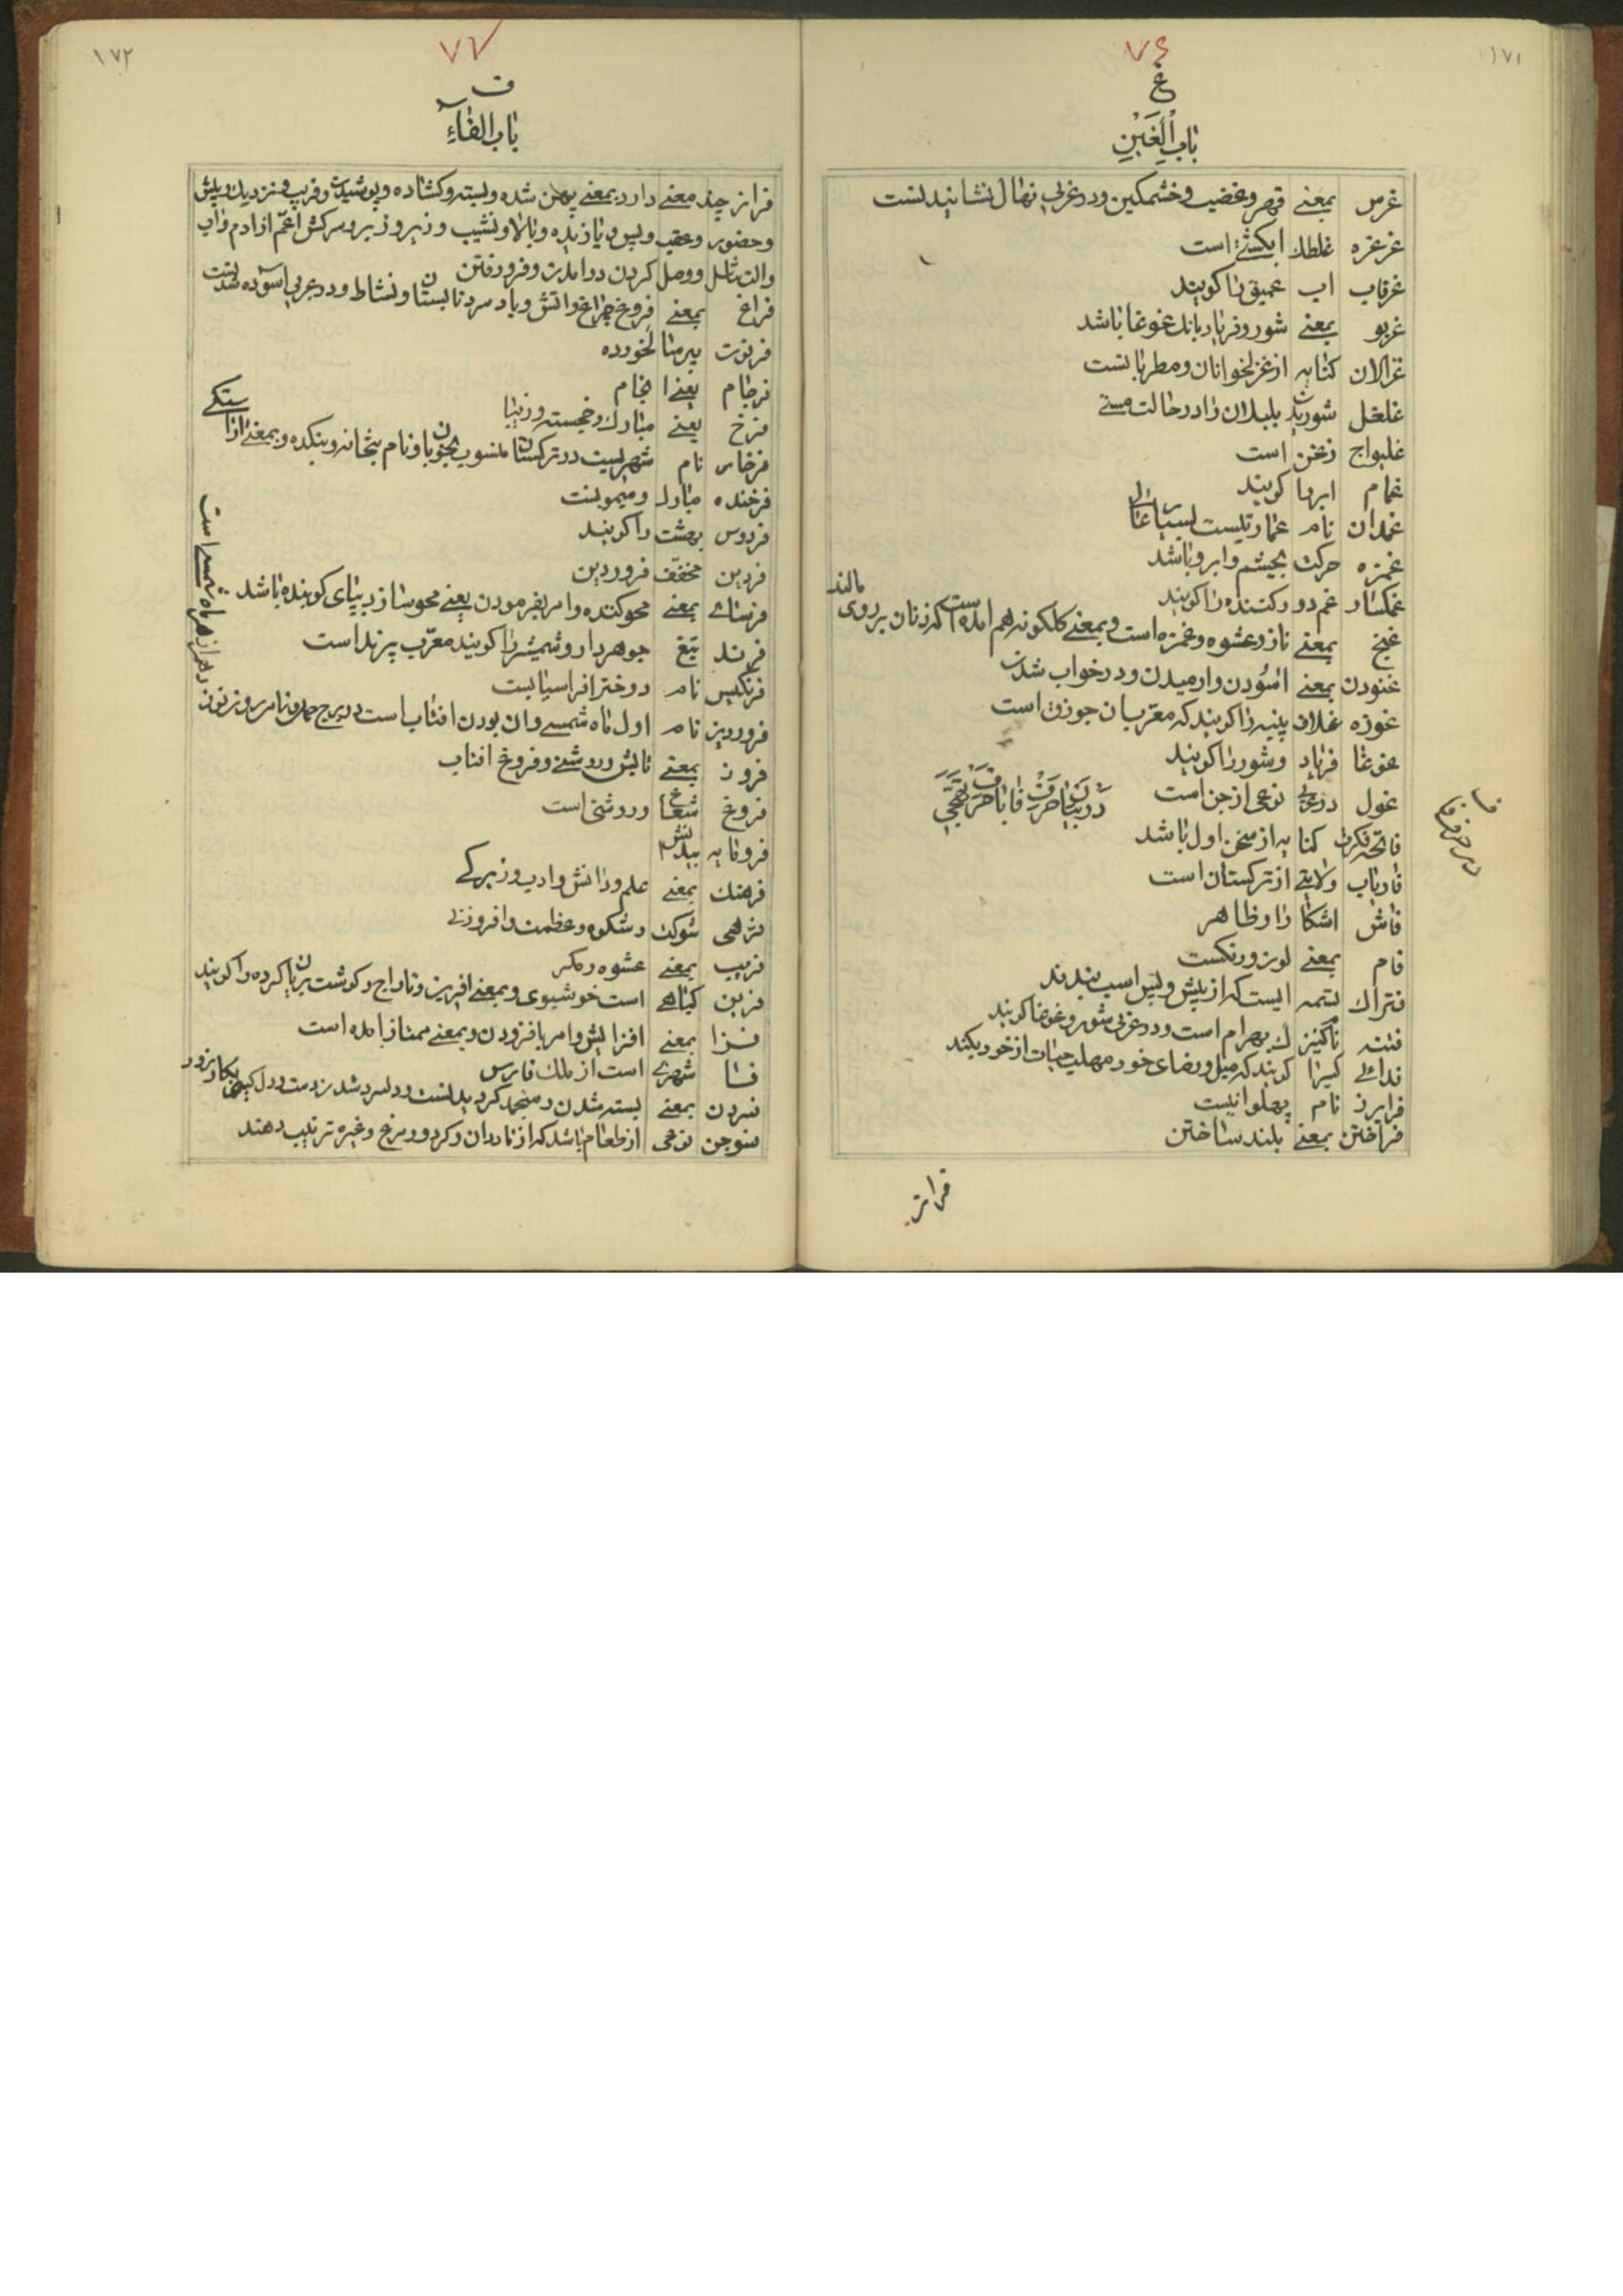 ۱۷۱
۷۶
غ
باب الغین
غرس بمعنی قهر و غضب و خشمکین و در عربی نهال نشانیدنست
غرغره غلطک ابکشی است
غرقاب اب عمیق را کویند
غریو بمعنی شور و فریاد بانک غوغا باشد
غزالان کنایه از غزلخوانان و مطربانست
غلغل شوریدن بلبلان را در حالت مستی
غلیواج زغن است
غمام ابرها کویند
غمدان نام عمارتیست
غمزه حرکت بچشم و ابرو باشد
غمکسار غم دور کننده را کویند
غنج بمعنی ناز و عشوه و غمزه است و بمعنی کلکونه هم امده است که زنان بر روی مالند
غنودن بمعنی اسودن و ارمیدن و در خواب شدن
غوزه غلاف پنبه را کویند که معرب ان جوزق است
غوغا فریاد و شور را کویند
غول در عربی نوعی از جن است
در بیان حرف فا با حرف تهجی
فاتحه فکرت کنایه از سخن اول باشد
فاریاب ولایتی از ترکستان است
فاش اشکارا و ظاهر
فام بمعنی لون و رنکست
فتراک تسمه ایست که از پیش و پس اسب بندند
فتنه نام کنیزک بهرام است و در عربی شور و غوغا کویند
فدائی کسیرا کویند که بمیل و رضای خود مهلب حیات از خود بکند
فرابرز نام پهلوانیست
فراختن بمعنی بلند ساختن
فراز
۱۷۲
۷۷
ف
باب الفاء
فراز چند معنی دارد بمعنی پهن شده و بسته و کشاده و پوشیدن و قریب و نزدیک و پیش
و حضور و عقب و پس و بازبده و بالا و نشیب و زیر و زبر و سرکش اعم از ادم و اب
والت تناسل و وصل کردن در امدن و فرو رفتن
فراغ بمعنی فروغ چراغ و اتش و باد سرد تابستان و نشاط و در عربی اسوده شدنست
فرتوت پیر سالخورده
فرجام یعنی انجام
فرخ یعنی مبارک و خجسته و زیبا
فرخار نام شهریست در ترکستان منسوب بخوبان و نام بتخانه و بتکده و بمعنی اراستکی
فرخنده مبارک و میمونست
فردوس بهشت را کویند
فردین مخفف فروردین
فرسای بمعنی محو کننده و امر بفرمودن یعنی محو ساز
فرند تیغ جوهردار و شمشیر را کویند معرب پرند است
فرنکیس نام دختر افراسیابست
فروردین نام اول ماه شمسی و ان بودن افتاب است در برج حمل و نام روز نوزدهم از هر ماه شمسی است
فروز بمعنی تابش و روشنی و فروغ افتاب
فروغ شعاع و روشنی است
فرومایه بیدانش
فرهنک بمعنی علم و دانش و ادب و زیرکی
فرهی شوکت و شکوه و عظمت و افروزنی
فریب بمعنی عشوه و مکر
فزین کیاهی است خوشبوی و بمعنی افرین و تاراج و کوشت بریان کرده را کویند
فزا بمعنی افزایش و امر بافزودن و بمعنی ممتاز امده است
فسا شهری است از ملک فارس
فسردن بمعنی بسته شدن و منجمد کردیدنست و دلسرد شدن
فسوجن نوعی از طعام باشد که از ناردان و کردو و مرغ و غیره ترتیب دهند